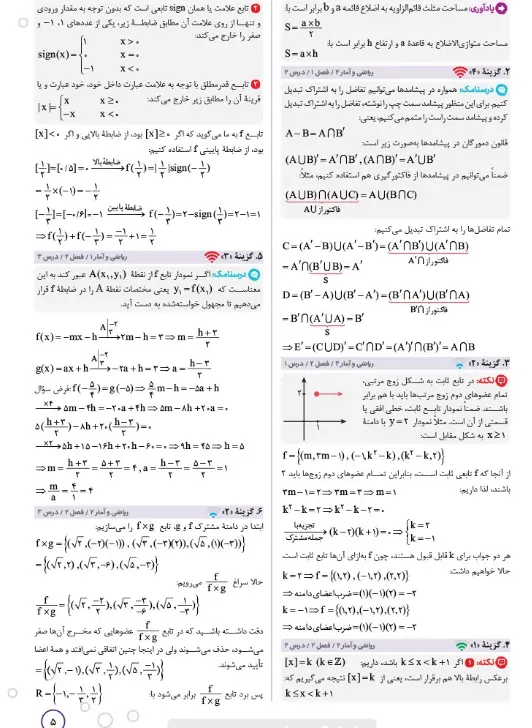 یادآوری: مساحت مثلث قائم‌الزاویه به اضلاع قائمه a و b برابر است با:
S = a×b / ۲
مساحت متوازی‌الاضلاع به قاعدهٔ a و ارتفاع h برابر است با:
S = a×h
۲. گزینهٔ «۴»
ریاضی و آمار ۲ / فصل ۱ / درس ۲
درسنامک: همواره در پیشامدها می‌توانیم تفاضل را به اشتراک تبدیل
کنیم. برای این منظور پیشامد سمت چپ را نوشته، تفاضل را به اشتراک تبدیل
کرده و پیشامد سمت راست را متمم می‌کنیم، یعنی:
A − B = A∩B′
قانون دمورگان در پیشامدها به‌صورت زیر است:
(A∪B)′ = A′∩B′ , (A∩B)′ = A′∪B′
ضمناً می‌توانیم در پیشامدها از فاکتورگیری هم استفاده کنیم، مثلاً:
(A∪B)∩(A∪C) = A∪(B∩C)
فاکتور از A∪
تمام تفاضل‌ها را به اشتراک تبدیل می‌کنیم:
C = (A′−B)∪(A′−B′) = (A′∩B′)∪(A′∩B)
فاکتور از A′∩
= A′∩(B′∪B) = A′
S
D = (B′−A)∪(B′−A′) = (B′∩A′)∪(B′∩A)
فاکتور از B′∩
= B′∩(A′∪A) = B′
S
⇒ E′ = (C∪D)′ = C′∩D′ = (A′)′∩(B′)′ = A∩B
۳. گزینهٔ «۲»
نکته: در تابع ثابت به شکل زوج مرتبی،
تمام عضوهای دوم زوج مرتب‌ها باید با هم برابر
باشند. ضمناً نمودار تابع ثابت، خطی افقی یا
قسمتی از آن است. مثلاً نمودار y = ۲ با دامنهٔ
x ≤ ۱ به شکل مقابل است:
۲
f = {(m, ۳m−۱), (−۱, k²−k), (k²−k, ۲)}
از آنجا که f تابعی ثابت است، بنابراین تمام عضوهای دوم زوج‌ها باید ۲
باشند، لذا داریم:
۳m−۱ = ۲ ⇒ ۳m = ۳ ⇒ m = ۱
k²−k = ۲ ⇒ k²−k−۲ = ۰
تجزیه با جمله مشترک (k−۲)(k+۱) = ۰ ⇒ {k = ۲
k = −۱
هر دو جواب برای k قابل قبول هستند، چون f به‌ازای آن‌ها تابع ثابت است.
حالا خواهیم داشت:
k = ۲ ⇒ f = {(۱,۲), (−۱,۲), (۲,۲)}
⇒ ضرب اعضای دامنه = (۱)(−۱)(۲) = −۲
k = −۱ ⇒ f = {(۱,۲), (−۱,۲), (۲,۲)}
⇒ ضرب اعضای دامنه = (۱)(−۱)(۲) = −۲
۴. گزینهٔ «۱»
نکته: ۱ اگر k ≤ x < k+۱ باشد، داریم: [x] = k (k∈ℤ)
برعکس رابطهٔ بالا هم برقرار است، یعنی از [x] = k نتیجه می‌گیریم که:
k ≤ x < k+۱
۲ تابع علامت یا همان sign تابعی است که بدون توجه به مقدار ورودی
و تنها از روی علامت آن مطابق ضابطهٔ زیر، یکی از عددهای ۱، ۱− و
صفر را خارج می‌کند:
sign(x) = {۱ x > ۰
۰ x = ۰
−۱ x < ۰
۳ تابع قدرمطلق با توجه به علامت عبارت داخل خود، خود عبارت و یا
قرینهٔ آن را مطابق زیر خارج می‌کند:
|x| = {x x ≥ ۰
−x x < ۰
تابع f به ما می‌گوید که اگر [x] ≥ ۰ بود، از ضابطهٔ بالایی و اگر [x] < ۰
بود، از ضابطهٔ پایینی f استفاده کنیم:
[۱/۲] = [۰/۵] = ۰ ضابطهٔ بالا f(۱/۲) = |۱/۲| sign(−۱/۲)
= ۱/۲ × (−۱) = −۱/۲
ضابطهٔ پایین f(−۱/۳) = ۲ − sign(۱/۳) = ۲−۱ = ۱
⇒ f(۱/۲) + f(−۱/۳) = −۱/۲ + ۱ = ۱/۲
۵. گزینهٔ «۳»
درسنامک: اگر نمودار تابع f از نقطهٔ A(x₁, y₁) عبور کند به این
معناست که y₁ = f(x₁) یعنی مختصات نقطهٔ A را در ضابطهٔ f قرار
می‌دهیم تا مجهول خواسته‌شده به دست آید.
f(x) = −mx − h A|−۲ ۳ ۲m − h = ۳ ⇒ m = h+۳ / ۲
g(x) = ax + h A|−۲ ۳ −۲a + h = ۳ ⇒ a = h−۳ / ۲
فرض سؤال: f(−۵/۴) = g(−۵) ⇒ ۵/۴ m − h = −۵a + h
×۴ ۵m − ۴h = −۲۰a + ۴h ⇒ ۵m − ۸h + ۲۰a = ۰
۵(h+۳ / ۲) − ۸h + ۲۰(h−۳ / ۲) = ۰
×۲ ۵h + ۱۵ − ۱۶h + ۲۰h − ۶۰ = ۰ ⇒ ۹h = ۴۵ ⇒ h = ۵
⇒ m = h+۳ / ۲ = ۵+۳ / ۲ = ۴ , a = h−۳ / ۲ = ۵−۳ / ۲ = ۱
⇒ m/a = ۴/۱ = ۴
۶. گزینهٔ «۲»
ابتدا در دامنهٔ مشترک f و g، تابع f×g را می‌سازیم:
f×g = {(√۲, (−۲)(−۱)), (√۳, (−۳)(۲)), (√۵, (۱)(−۳))}
= {(√۲, ۲), (√۳, −۶), (√۵, −۳)}
حالا سراغ f / f×g می‌رویم:
f / f×g = {(√۲, −۲/۲), (√۳, −۳/−۶), (√۵, ۱/−۳)}
دقت داشته باشید که در تابع f / f×g عضوهایی که مخرج آن‌ها صفر
می‌شود، حذف می‌شوند ولی در اینجا چنین اتفاقی نمی‌افتد و همهٔ اعضا
تأیید می‌شوند.
= {(√۲, −۱), (√۳, ۱/۲), (√۵, −۱/۳)}
پس برد تابع f / f×g برابر می‌شود با: R = {−۱, −۱/۳, ۱/۲}
۵